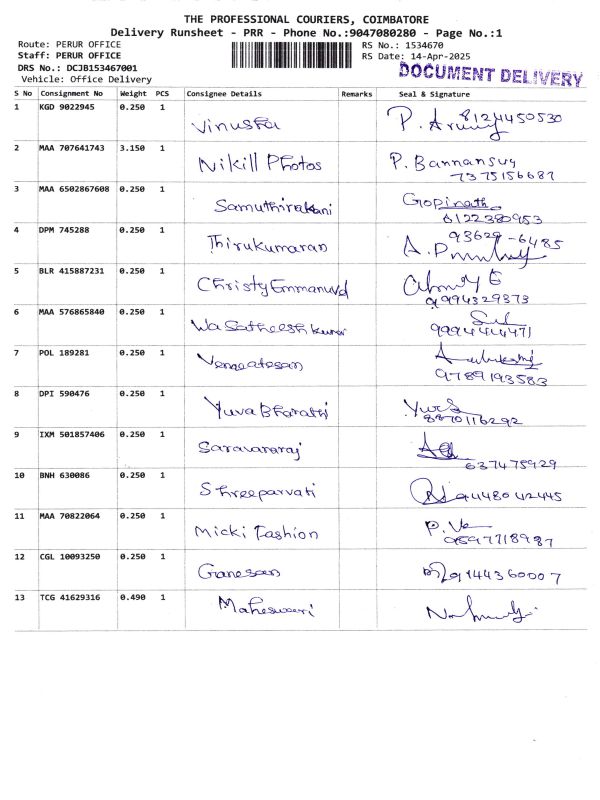 THE PROFESSIONAL COURIERS, COIMBATORE
Delivery Runsheet - PRR - Phone No.:9047080280 - Page No.:1
Route: PERUR OFFICE
RS No.: 1534670
Staff: PERUR OFFICE
RS Date: 14-Apr-2025
DRS No.: DCJB153467001
DOCUMENT DELIVERY
Vehicle: Office Delivery
S No Consignment No Weight PCS Consignee Details Remarks Seal & Signature
1 KGD 9022945 0.250 1 Vinusha 8124450530
2 MAA 707641743 3.150 1 Nikill Photos P. Bannansuy
7375156687
3 MAA 6502867608 0.250 1 Samuthirakani Gopinath
6122380953
4 DPM 745288 0.250 1 Thirukumaran 93629-6485
5 BLR 415887231 0.250 1 Christy Emmanuvel
9994329373
6 MAA 576865840 0.250 1 Satheesh kumar
9994444471
7 POL 189281 0.250 1 Vengatesan
9789193583
8 DPI 590476 0.250 1 Yuva Bharathi
8870116292
9 IXM 501857406 0.250 1 Saravanaraj
637475929
10 BNH 630086 0.250 1 Shreeparvati 9448042445
11 MAA 70822064 0.250 1 Micki Fashion
9597718987
12 CGL 10093250 0.250 1 Ganesan 9144360007
13 TCG 41629316 0.490 1 Maheswari